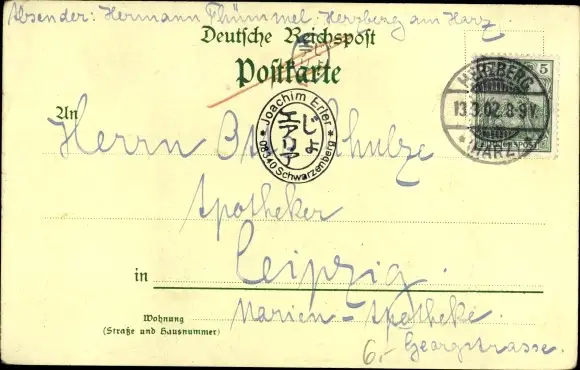 Absender: Hermann Thümmel. Herzberg am Harz.
Deutsche Reichspost
Postkarte
HERZBERG
13.3.02.8-9V.
* (HARZ) *
5
REICHSPOST
* Joachim Erler *
08340 Schwarzenberg
じょ
エアリア
An
Herrn Schulze
Apotheker
in Leipzig.
Wohnung
(Straße und Hausnummer)
Marien-Apotheke.
Georgstrasse.
6,-